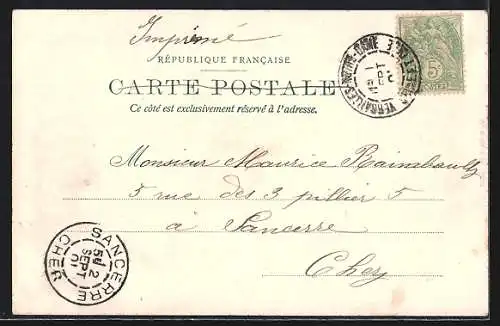 Imprimé
RÉPUBLIQUE FRANÇAISE
CARTE POSTALE
Ce côté est exclusivement réservé à l'adresse.
VERSAILLES SEPT
5c
Monsieur Maurice Raimbault
5 rue des 3 pillier 5
à Sancerre
Cher
SANCERRE
5E 2
SEPT
01
CHER